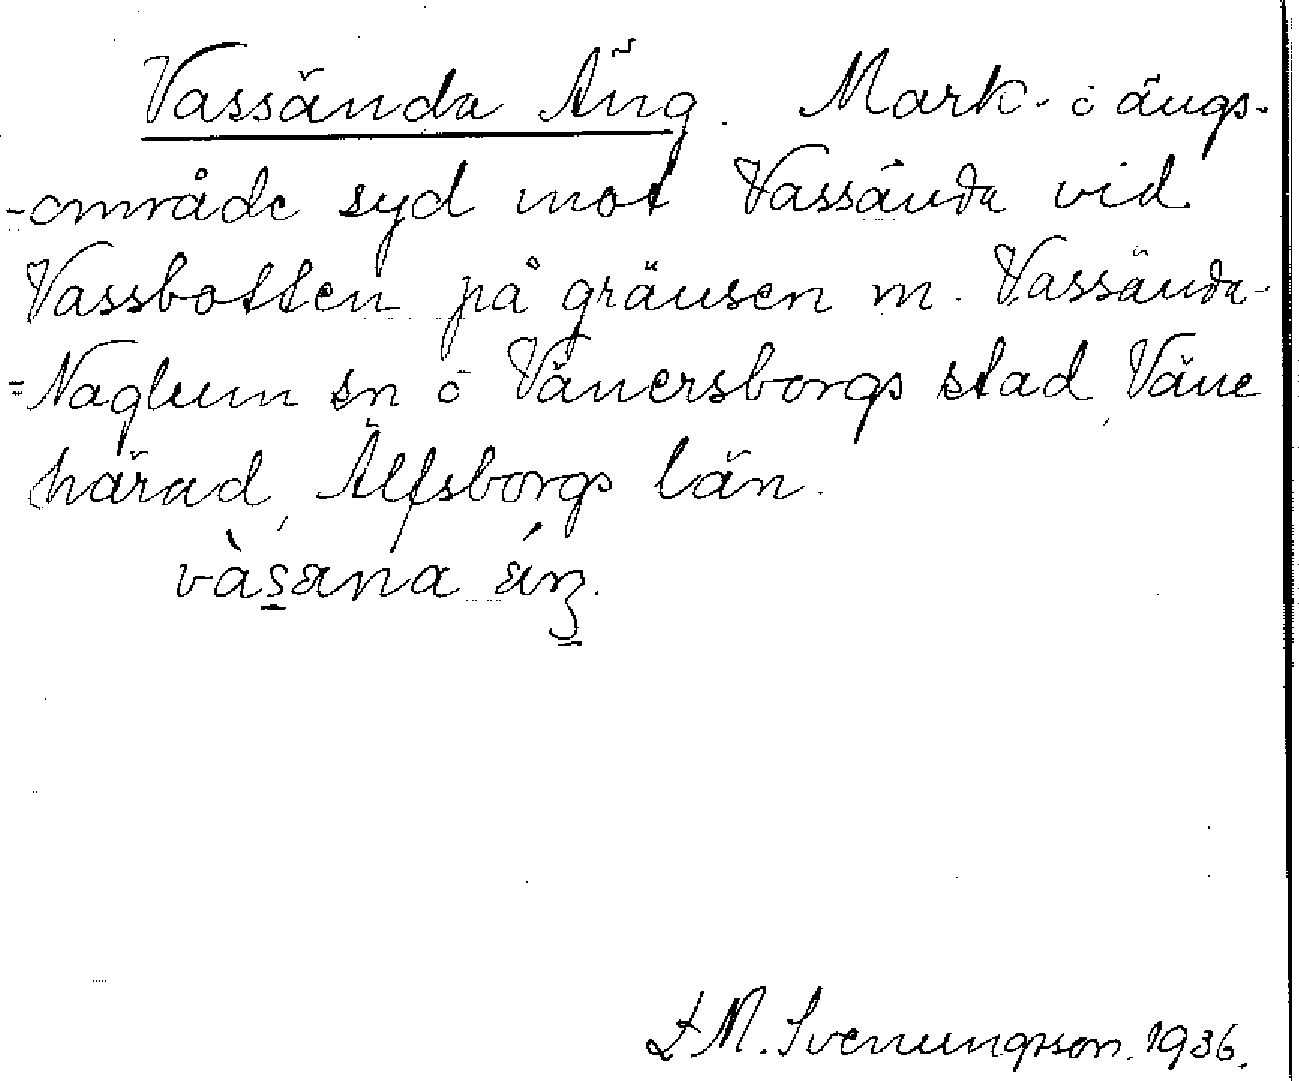 Vassända Äng. Mark- o ängs-
-område syd mot Vassända vid
Vassbotten på gränsen m. Vassända-
=Naglum sn o Vänersborgs stad, Väne
härad, Älfsborgs län.
vàs̲ana áŋ̲.
L M. Svenungsson. 1936.